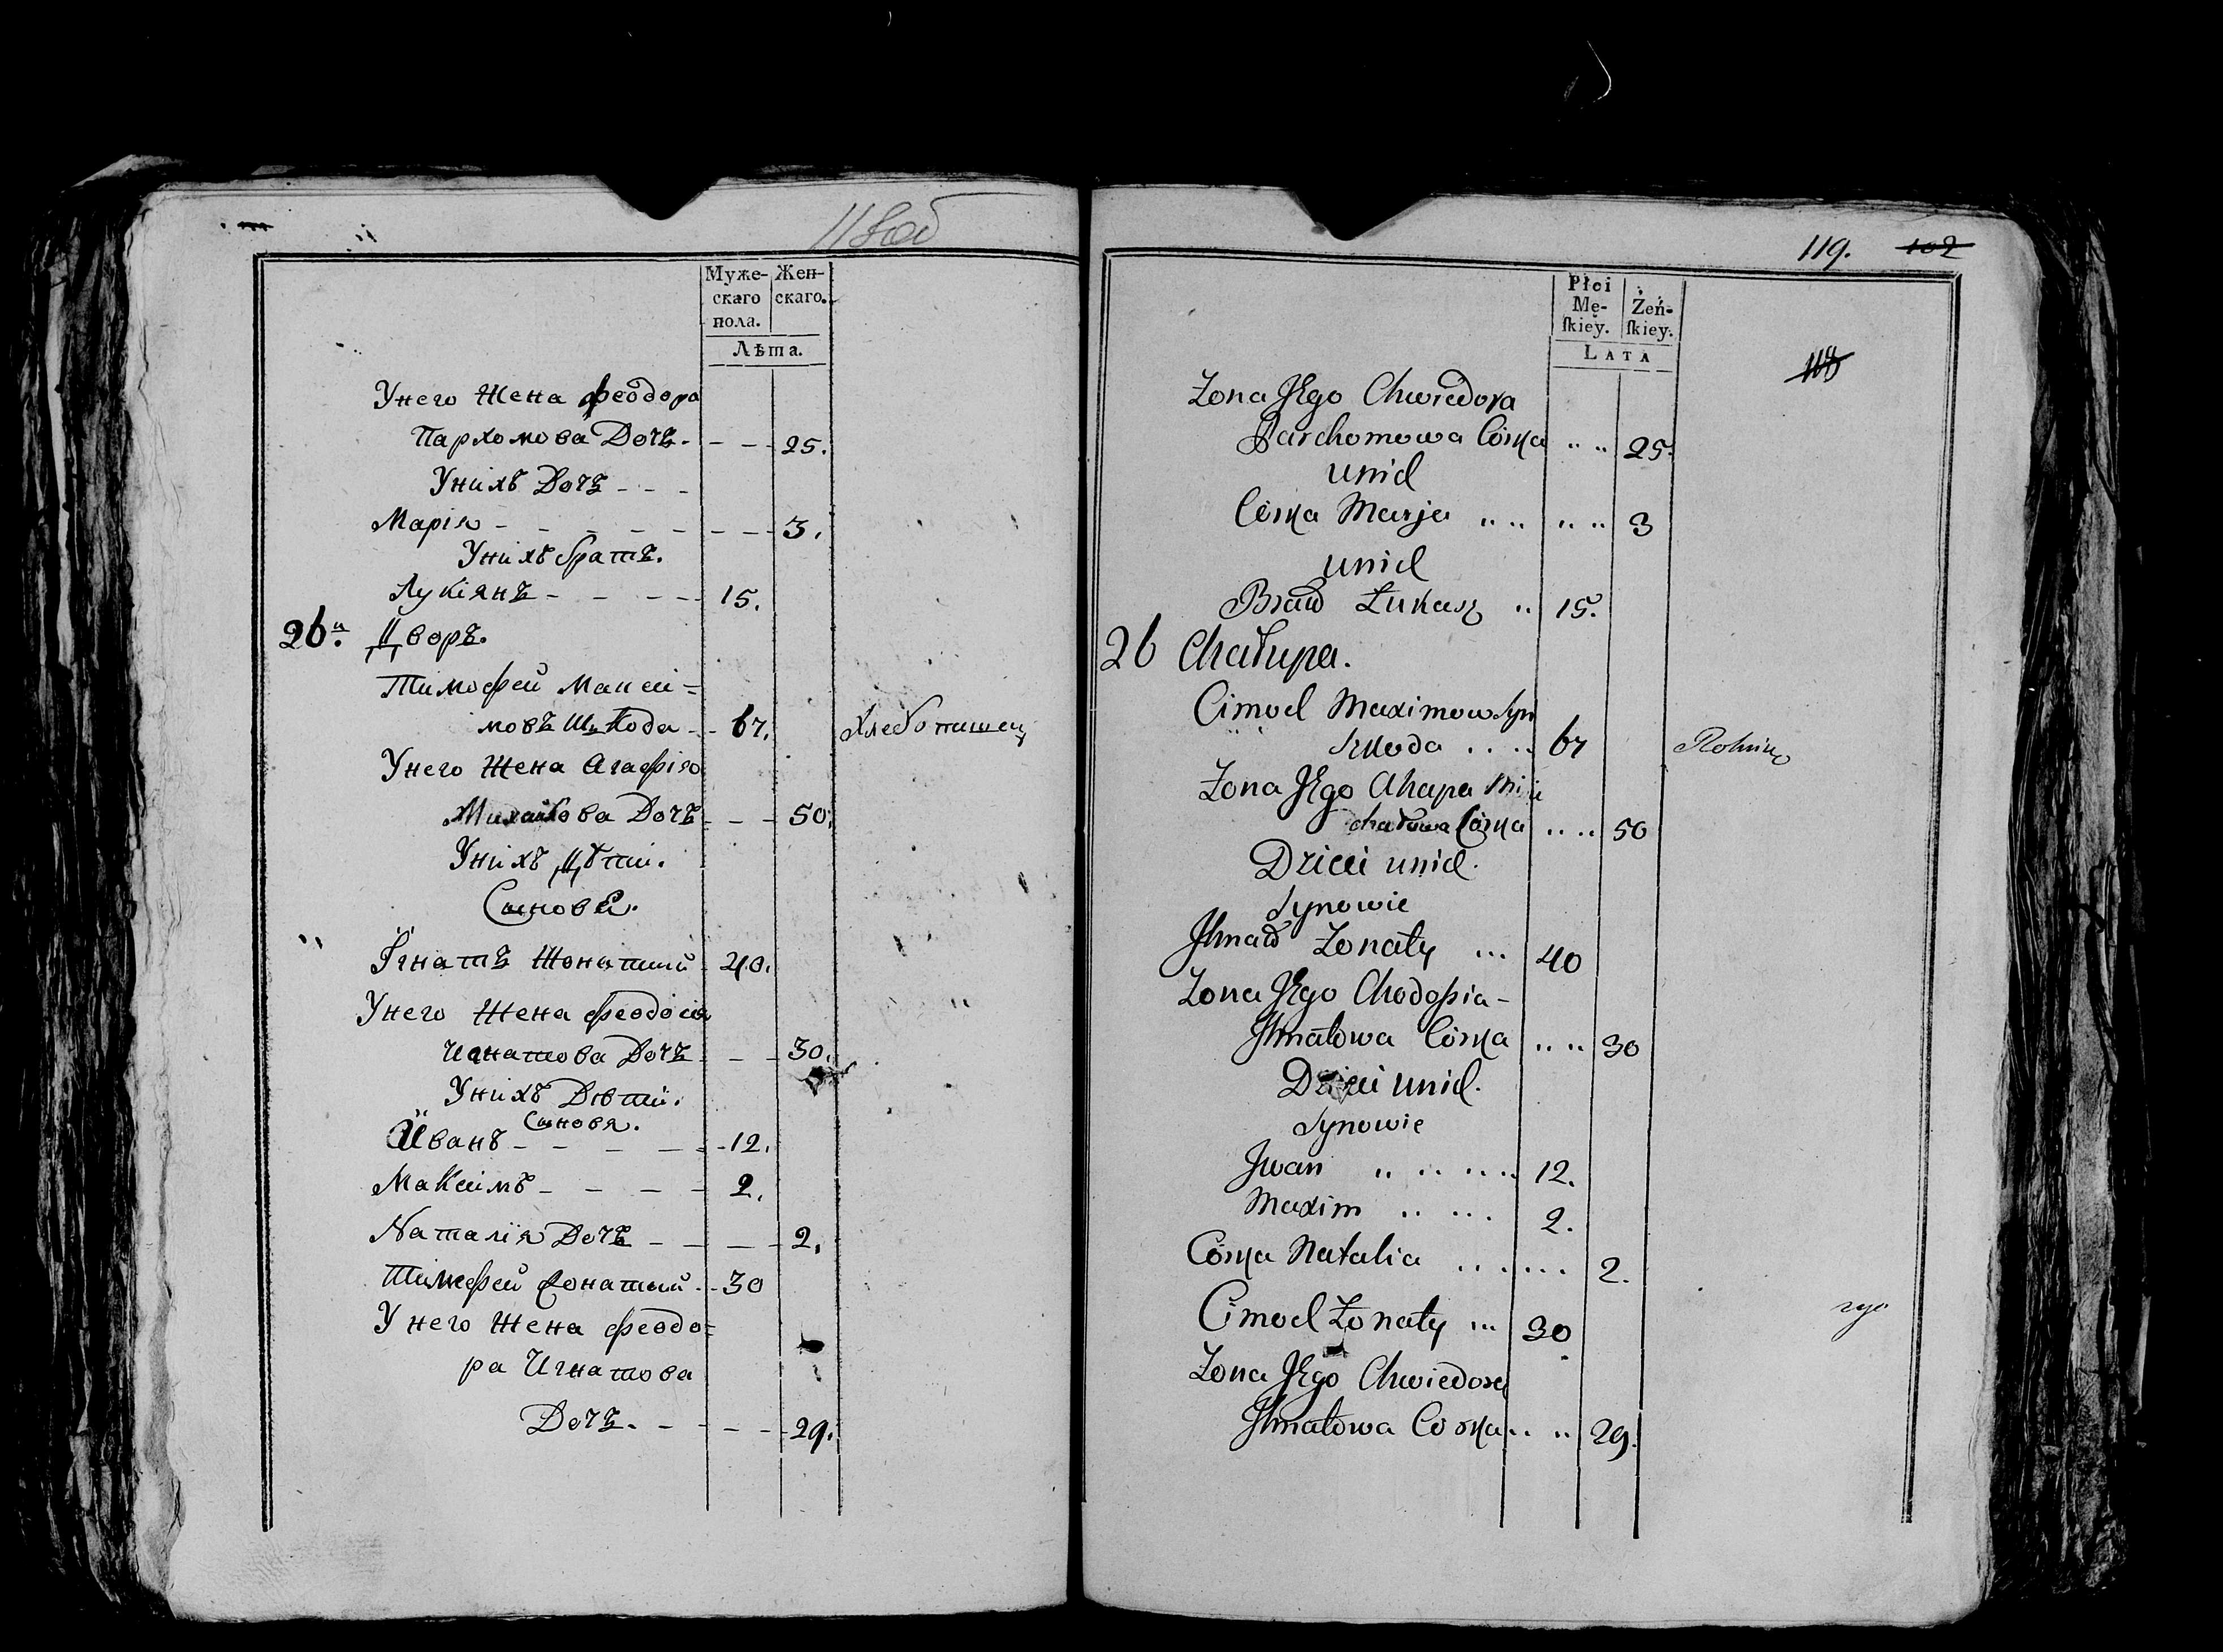 118об
Муже-
скаго
пола.
Жен-
скаго.
Лѣта.
Унего Жена Феодора
Пархомова Дочъ. - - - 25.
Унихъ Дочъ - - -
Марія - - - - - - - - 3.
Унихъ братъ.
Лукіянъ - - - - 15.
26.й Дворъ.
Тимофей Максі=
мовъ Шкода - - 67. Хлебопашец
Унего Жена Агафія
Михайлова Дочъ - - - 50.
Унихъ Дѣти.
Сыновя.
Ігнатъ Жонатый 40.
Унего Жена Феодосія
Игнатова Дочъ - - - 30.
Унихъ Дѣти.
Сыновя.
Иванъ - - - - - 12.
Максімъ - - - - 2.
Nаталія Дочъ - - - - 2.
Тімофей Жонатый - - 30
Унего Жена Феодо=
ра Игнатова
Дочъ. - - - - - 29.
119. 102
Płci
Mę-
ſkiey.
Żeń-
ſkiey.
LATA
118
Zona Jego Chwiedora
Parchomowa Córka .. .. 25.
unich
Córka Marja .. .. .. .. 3
unich
Brat Łukasz .. 15.
26 Chałupa.
Cimoch Maximow Syn
Szkoda .... 67 Rolnik
Zona Jego Ahapa Mi
chałowa Córka .. .. 50
Dzieci unich.
Synowie
Ihnat Zonaty ... 40
Zona Jego Chodosia -
Ihnatowa Córka .. .. 30
Dzieci unich.
Synowie
Jwan .. .. .... 12.
Maxim .. ... 2.
Córka Natalia ...... 2.
Cimoch Zonaty ... 30
Zona Jego Chwiedora
Ihnatowa Corka .. .. 29.